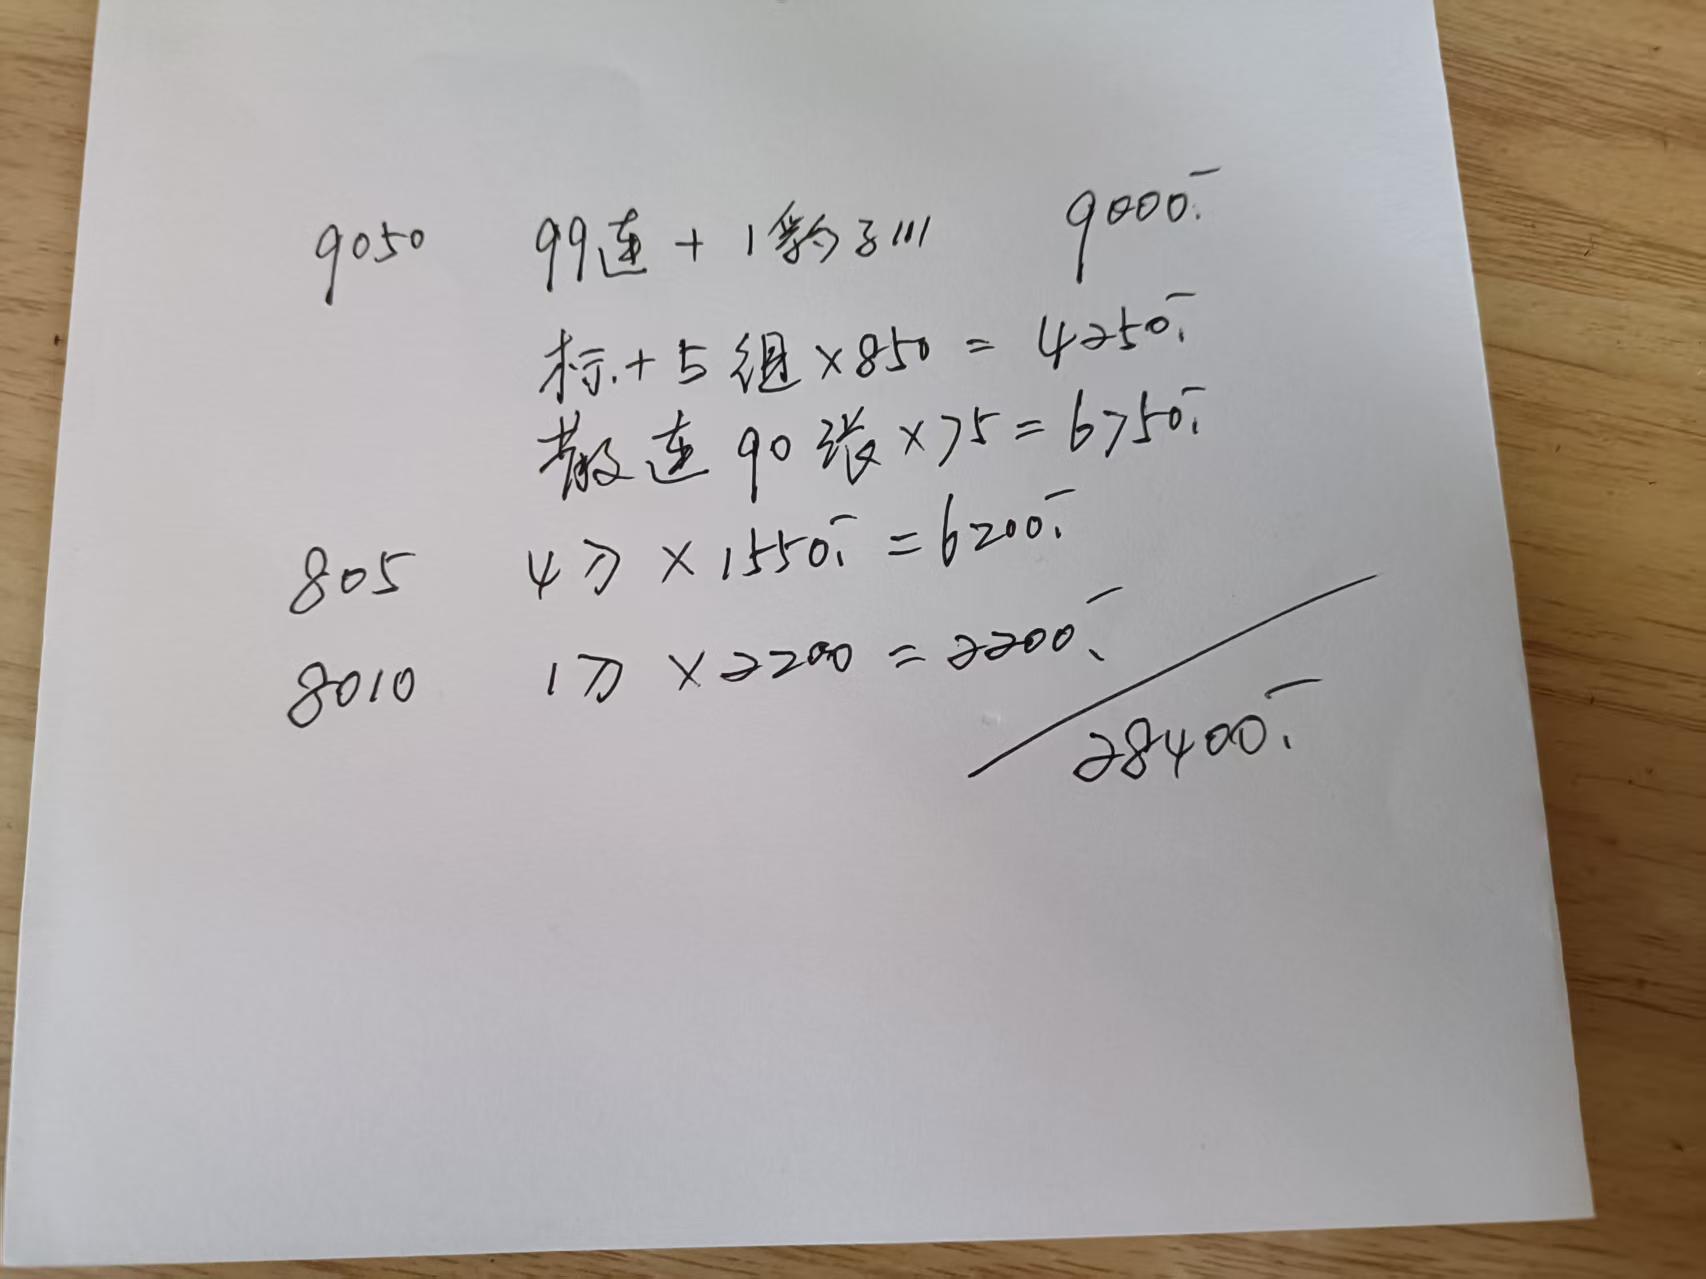 9050 99连+1豹子111 9000.-
标.+5组×850=4250.-
散连90张×75=6750.-
805 4刀×1550.-=6200.-
8010 1刀×2200=2200.-
28400.-